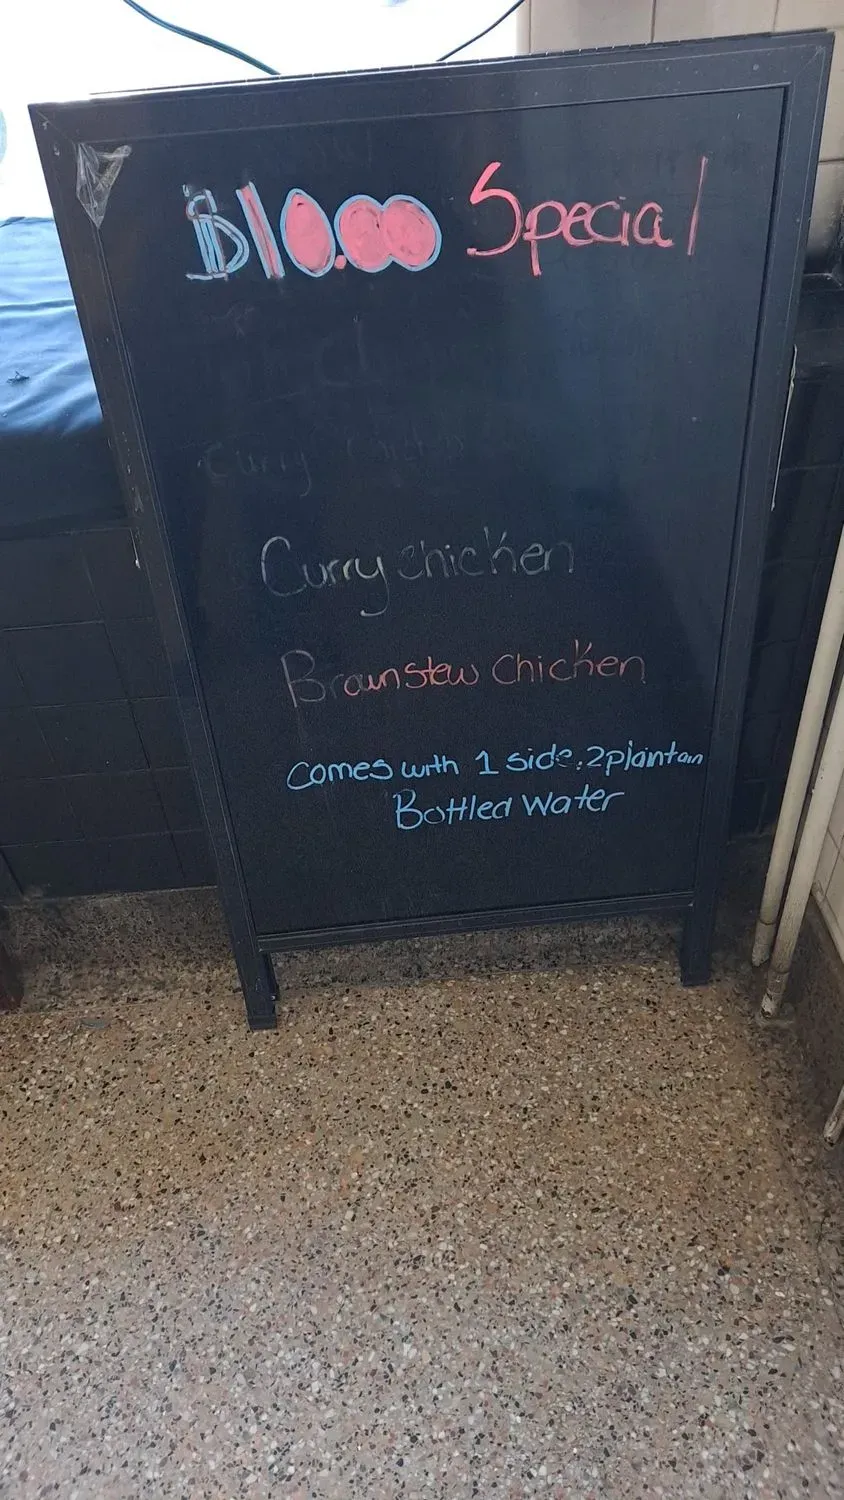 $10.00 Special
Curry chicken
Brownstew Chicken
Comes with 1 side, 2 plantain
Bottled Water